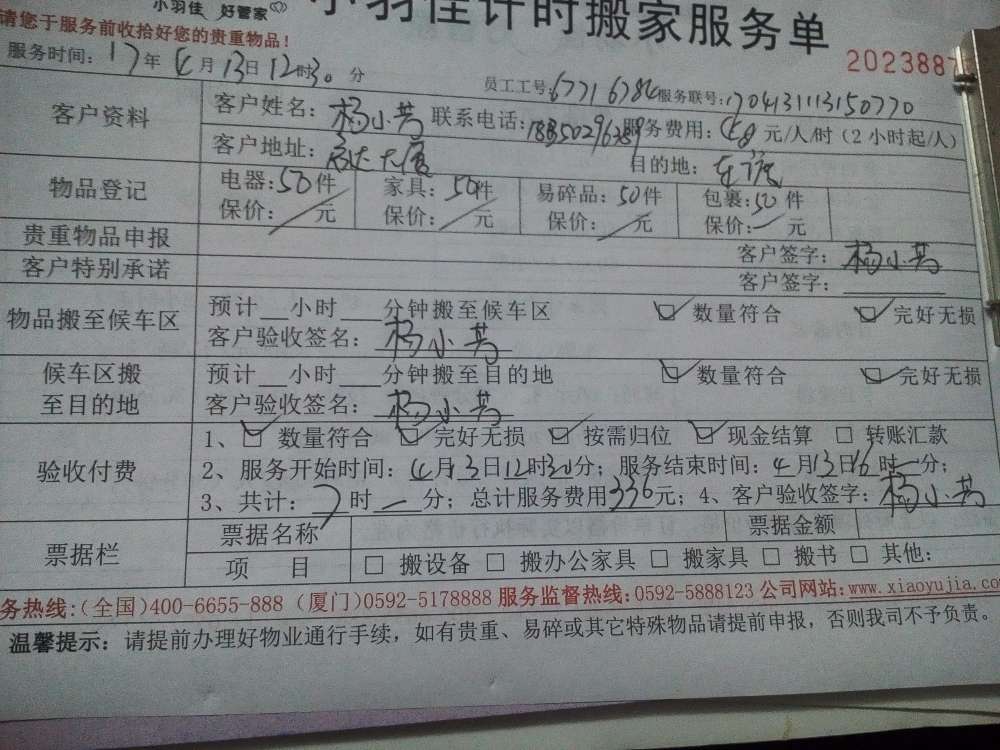 小羽佳 好管家
小羽佳计时搬家服务单
请您于服务前收拾好您的贵重物品！
2023887
服务时间：17年4月13日12时30分 员工工号：6771 6784 服务联号：1704131113150770
客户资料 客户姓名：杨小芳 联系电话：18850296289 服务费用：48元/人/时（2小时起/人）
客户地址：宏达大厦 目的地：东渡
物品登记 电器：50件 家具：50件 易碎品：50件 包裹：50件
保价：／元 保价：／元 保价：／元 保价：／元
贵重物品申报 客户签字：杨小芳
客户特别承诺 客户签字：
物品搬至候车区 预计__小时___分钟搬至候车区 ☑ 数量符合 ☑ 完好无损
客户验收签名：杨小芳
候车区搬至目的地 预计__小时___分钟搬至目的地 ☑ 数量符合 ☑ 完好无损
客户验收签名：杨小芳
验收付费 1、☑ 数量符合 ☑ 完好无损 ☑ 按需归位 ☑ 现金结算 □ 转账汇款
2、服务开始时间：4月13日12时30分；服务结束时间：4月13日16时一分；
3、共计：7时一分；总计服务费用336元；4、客户验收签字：杨小芳
票据栏 票据名称 票据金额
项 目 □ 搬设备 □ 搬办公家具 □ 搬家具 □ 搬书 □ 其他：
务热线：（全国）400-6655-888（厦门）0592-5178888 服务监督热线：0592-5888123 公司网站：www.xiaoyujia.com
温馨提示：请提前办理好物业通行手续，如有贵重、易碎或其它特殊物品请提前申报，否则我司不予负责。